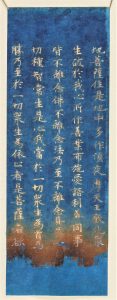 地菩薩住是地中多作須夜摩天王教化衆
生破於我心所作善業布施愛語利益同事
皆不離念佛不離念法乃至不離念具一
切種智常生是心我當於一切衆生為首為
勝乃至於一切衆生為依止者是菩薩若欲